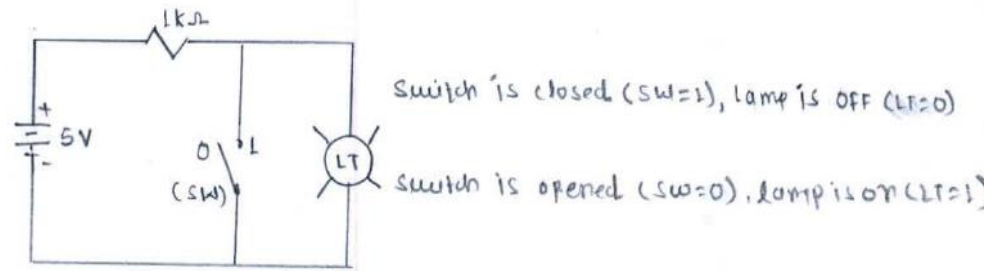 1kΩ
+
5V
-
0 1
(SW)
LT
Switch is closed (SW=1), lamp is OFF (LT=0)
Switch is opened (SW=0), lamp is on (LT=1)